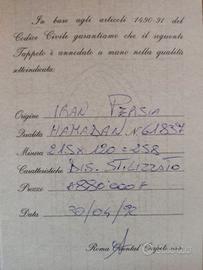 In base agli articoli 1490-91 del
Codice Civile garantiamo che il seguente
Tappeto è annodato a mano nella qualità
sottoindicata:
Origine IRAN PERSIA
Qualità HAMADAN N 61837
Misura 215 X 120 = 258
Caratteristiche DIS. STILIZZATO
Prezzo 1880'000
Data 30/04/92
Roma Oriental Carpets